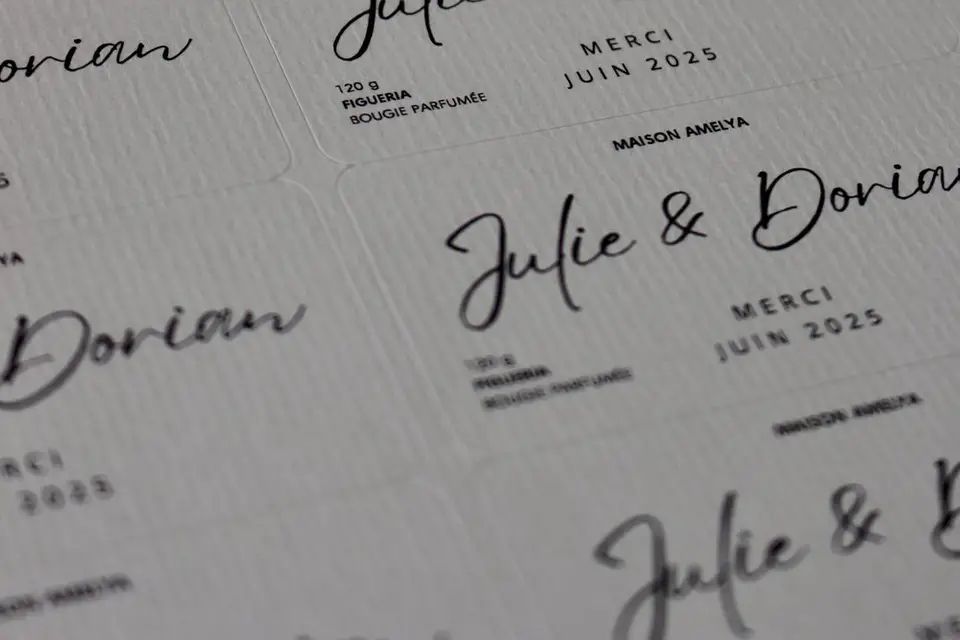 Dorian
Julie &
120 g
FIGUERIA
BOUGIE PARFUMÉE
MERCI
JUIN 2025
MAISON AMELYA
Julie & Dorian
MERCI
JUIN 2025
120 g
FIGUERIA
BOUGIE PARFUMÉE
Dorian
2025
MAISON AMELYA
Julie &